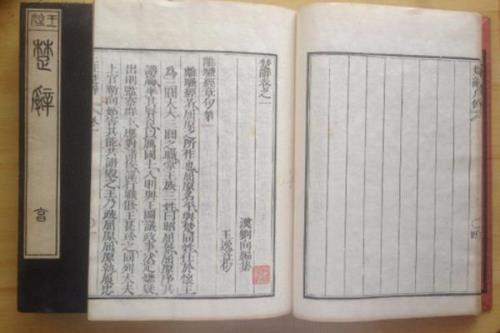 楚辭卷之一
漢劉向編集
王逸章句
離騷經章句第一
離騷經者屈原之所作也屈原名平與楚同姓仕於懷王
為三閭大夫三閭之職掌王族三姓曰昭屈景屈原序其
譜屬率其賢良以厲國士入則與王圖議政事決定嫌疑
出則監察羣下應對諸侯謀行職修王甚珍之同列大夫
上官靳尚妒害其能共譖毀之王乃疏屈原屈原執履忠
楚辭